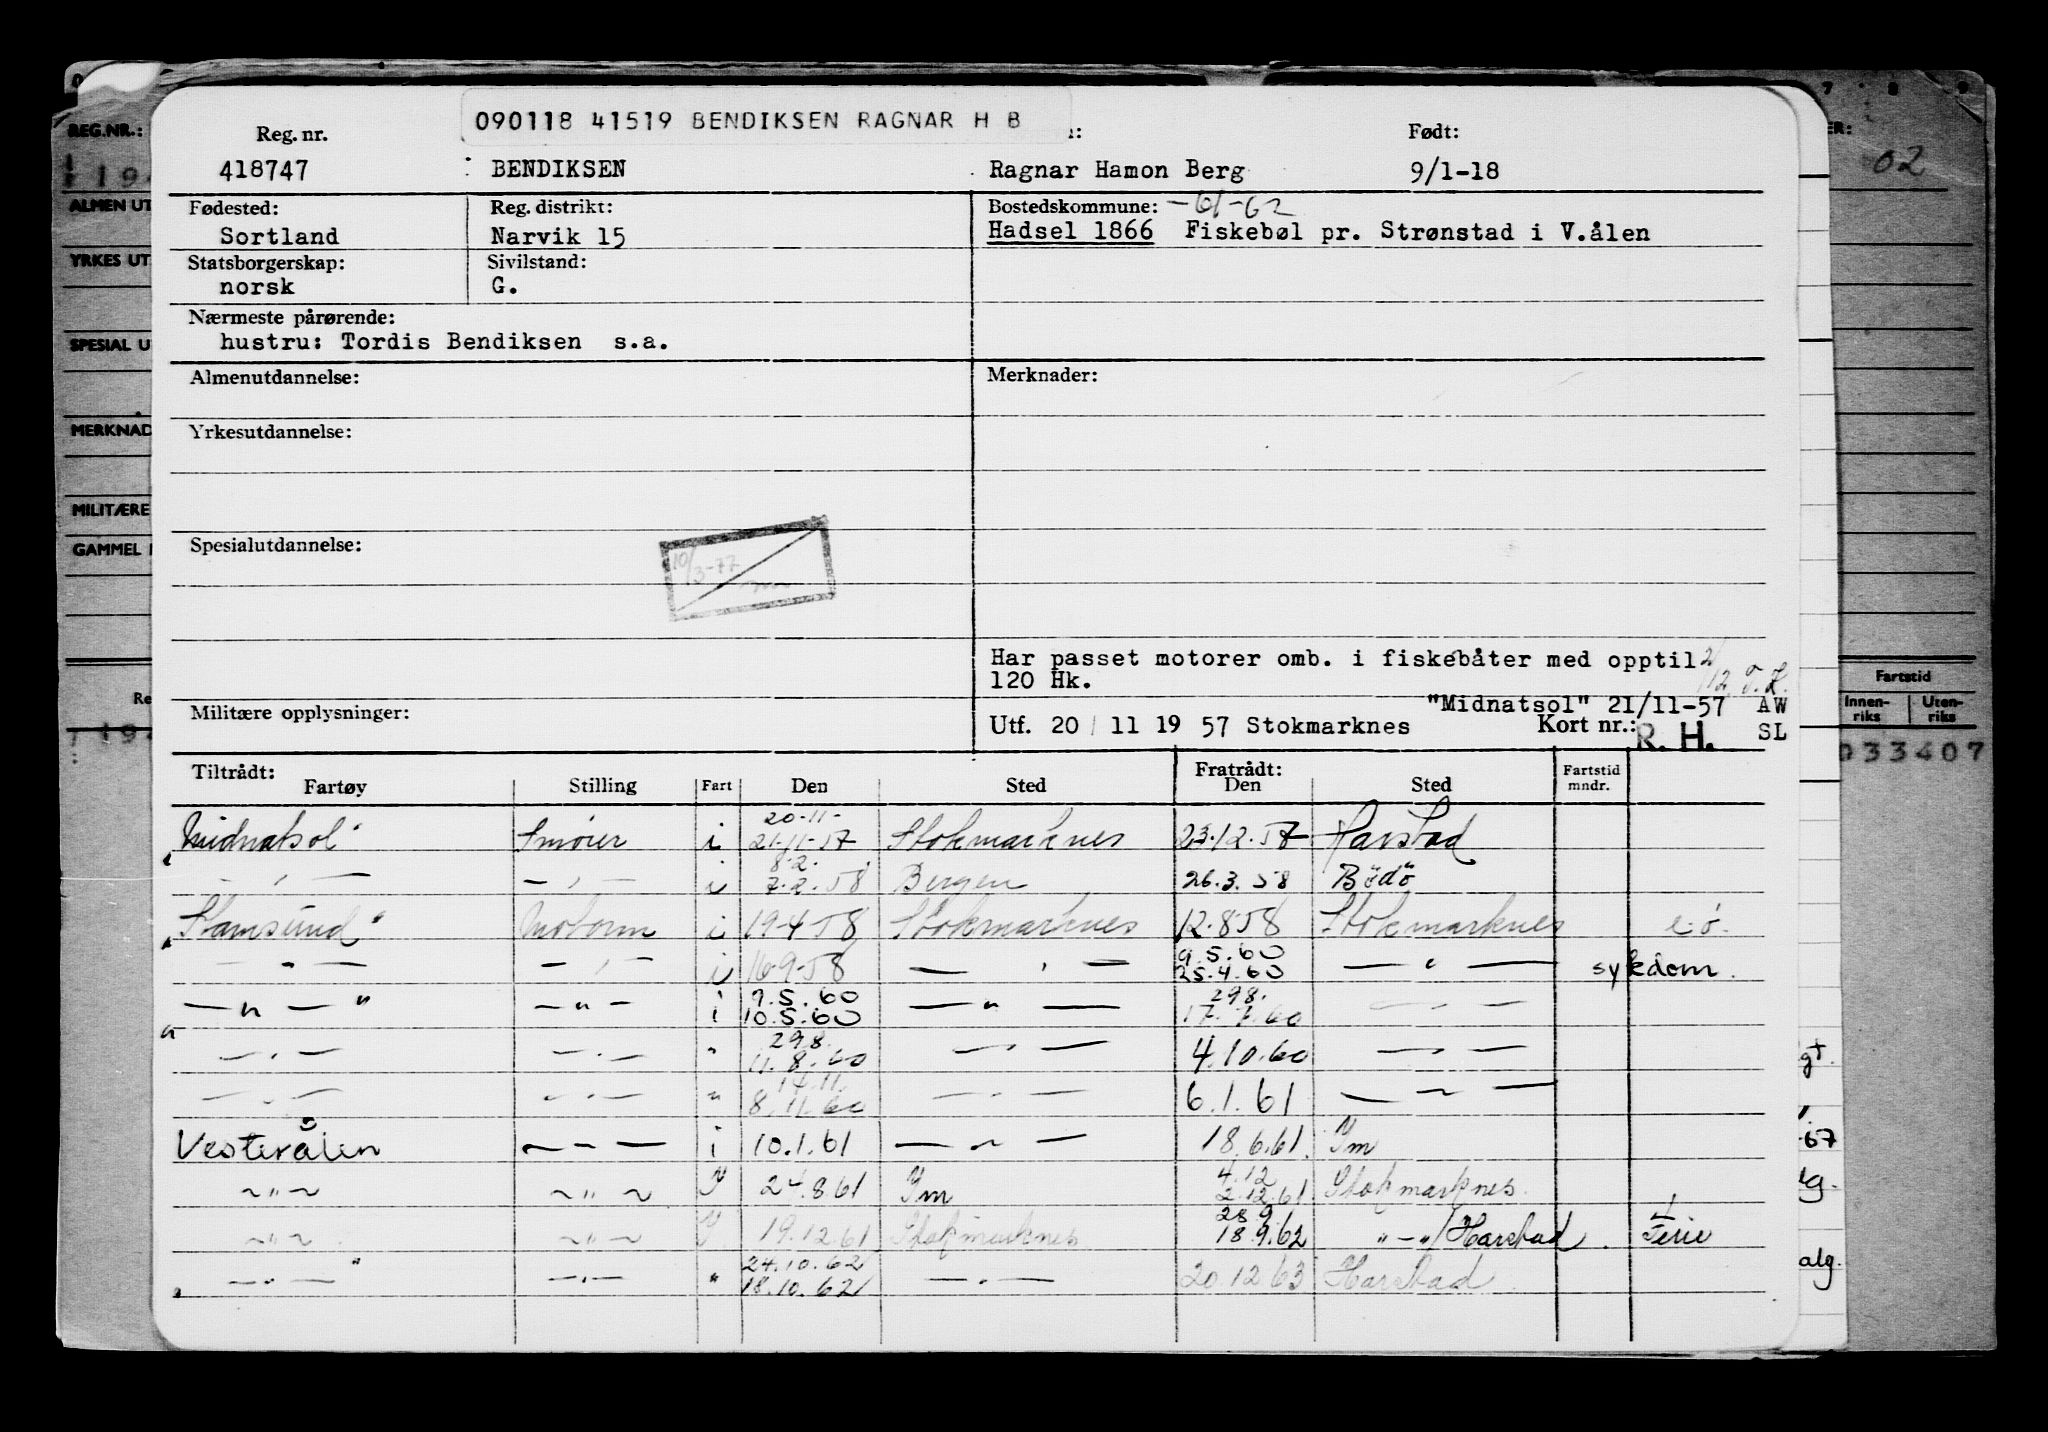 090118 41519 BENDIKSEN RAGNAR H B
REG.NR.: Reg. nr. Født:
418747 BENDIKSEN Ragnar Hamon Berg 9/1-18 02
ALMEN UT
Fødested: Reg. distrikt: Bostedskommune: -61-62
Sortland Narvik 15 Hadsel 1866 Fiskebøl pr. Strønstad i V.ålen
YRKES UT
Statsborgerskap: Sivilstand:
norsk G.
Nærmeste pårørende:
SPESIAL U
hustru: Tordis Bendiksen s.a.
Almenutdannelse: Merknader:
MERKNAD
Yrkesutdannelse:
MILITÆRE
GAMMEL
Spesialutdannelse:
10/3-77
Har passet motorer omb. i fiskebåter med opptil
120 Hk.
Fartstid
"Midnatsol" 21/11-57 AW
Innenriks Utenriks
Militære opplysninger: Utf. 20 / 11 19 57 Stokmarknes Kort nr.: R. H. SL
033407
Tiltrådt: Fratrådt: Fartstid
Fartøy Stilling Fart Den Sted Den Sted mndr.
20-11-
"Midnatsol" Smører i 21-11-57 Stokmarknes 23.12.57 Harstad
8.2.
— " — — " — i 7.2.58 Bergen 26.3.58 Bödö
"Stamsund" Motorm i 19-4-58 Stokmarknes 12.8.58 Stokmarknes e.ö.
9.5.60
— " — — " — i 16-9-58 — " — 25.4.60 — " — sykdom.
9.5.60 29.8.
— " — " — " — i 10.5.60 — " — 17.7.60 — " —
29.8.
" — " — — " — " 11.8.60 — " — 4.10.60 — " —
14.11.
— " — — " — " 8.11.60 — " — 6.1.61 — " —
Vesterålen — " — i 10.1.61 — " — 18.6.61. Ym
4.12
~ " ~ ~ " ~ Y 24.8.61 Ym 2.12.61 Stokmarknes.
28.9.
~ " ~ ~ " ~ Y 19.12.61 Stokmarknes 18.9.62 " — " / Harstad Ferie
24.10.62
" — " — " — " — " 18.10.62 — " — 20.12.63 Harstad
gt.
-67
alg.